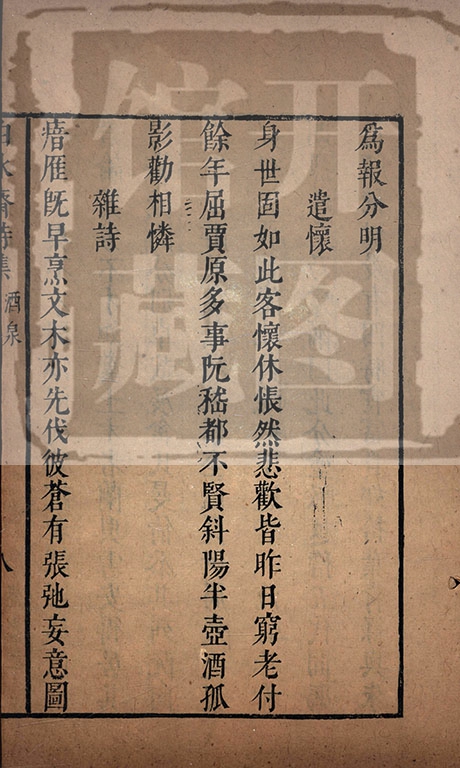 為報分明
遣懷
身世固如此客懷休悵然悲歡皆昨日窮老付
餘年屈賈原多事阮嵇都不賢斜陽半壺酒孤
影勸相憐
雜詩
瘖雁既早烹文木亦先伐彼蒼有張弛妄意圖
白水齋詩集 酒泉 八
开图馆藏